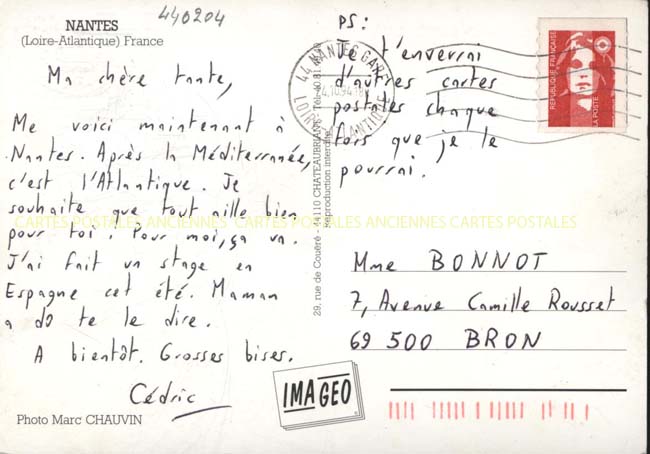 440204
NANTES
(Loire-Atlantique) France
Ma chère tante,
Me voici maintenant à
Nantes. Après la Méditerranée,
c'est l'Atlantique. Je
souhaite que tout aille bien
pour toi. Pour moi, ça va.
J'ai fait un stage en
Espagne cet été. Maman
a dû te le dire.
A bientôt. Grosses bises.
Cédric
Photo Marc CHAUVIN
PS:
Je t'enverrai
d'autres cartes
postales chaque
fois que je le
pourrai.
44 NANTES GARE
LOIRE ATLANTIQUE
RÉPUBLIQUE FRANÇAISE
LA POSTE
29, rue de Couëré - 44110 CHATEAUBRIANT - Tél. 40 81
Reproduction interdite
Mme BONNOT
7, Avenue Camille Rousset
69 500 BRON
IMAGEO
CARTES POSTALES ANCIENNES CARTES POSTALES ANCIENNES CARTES POSTALES